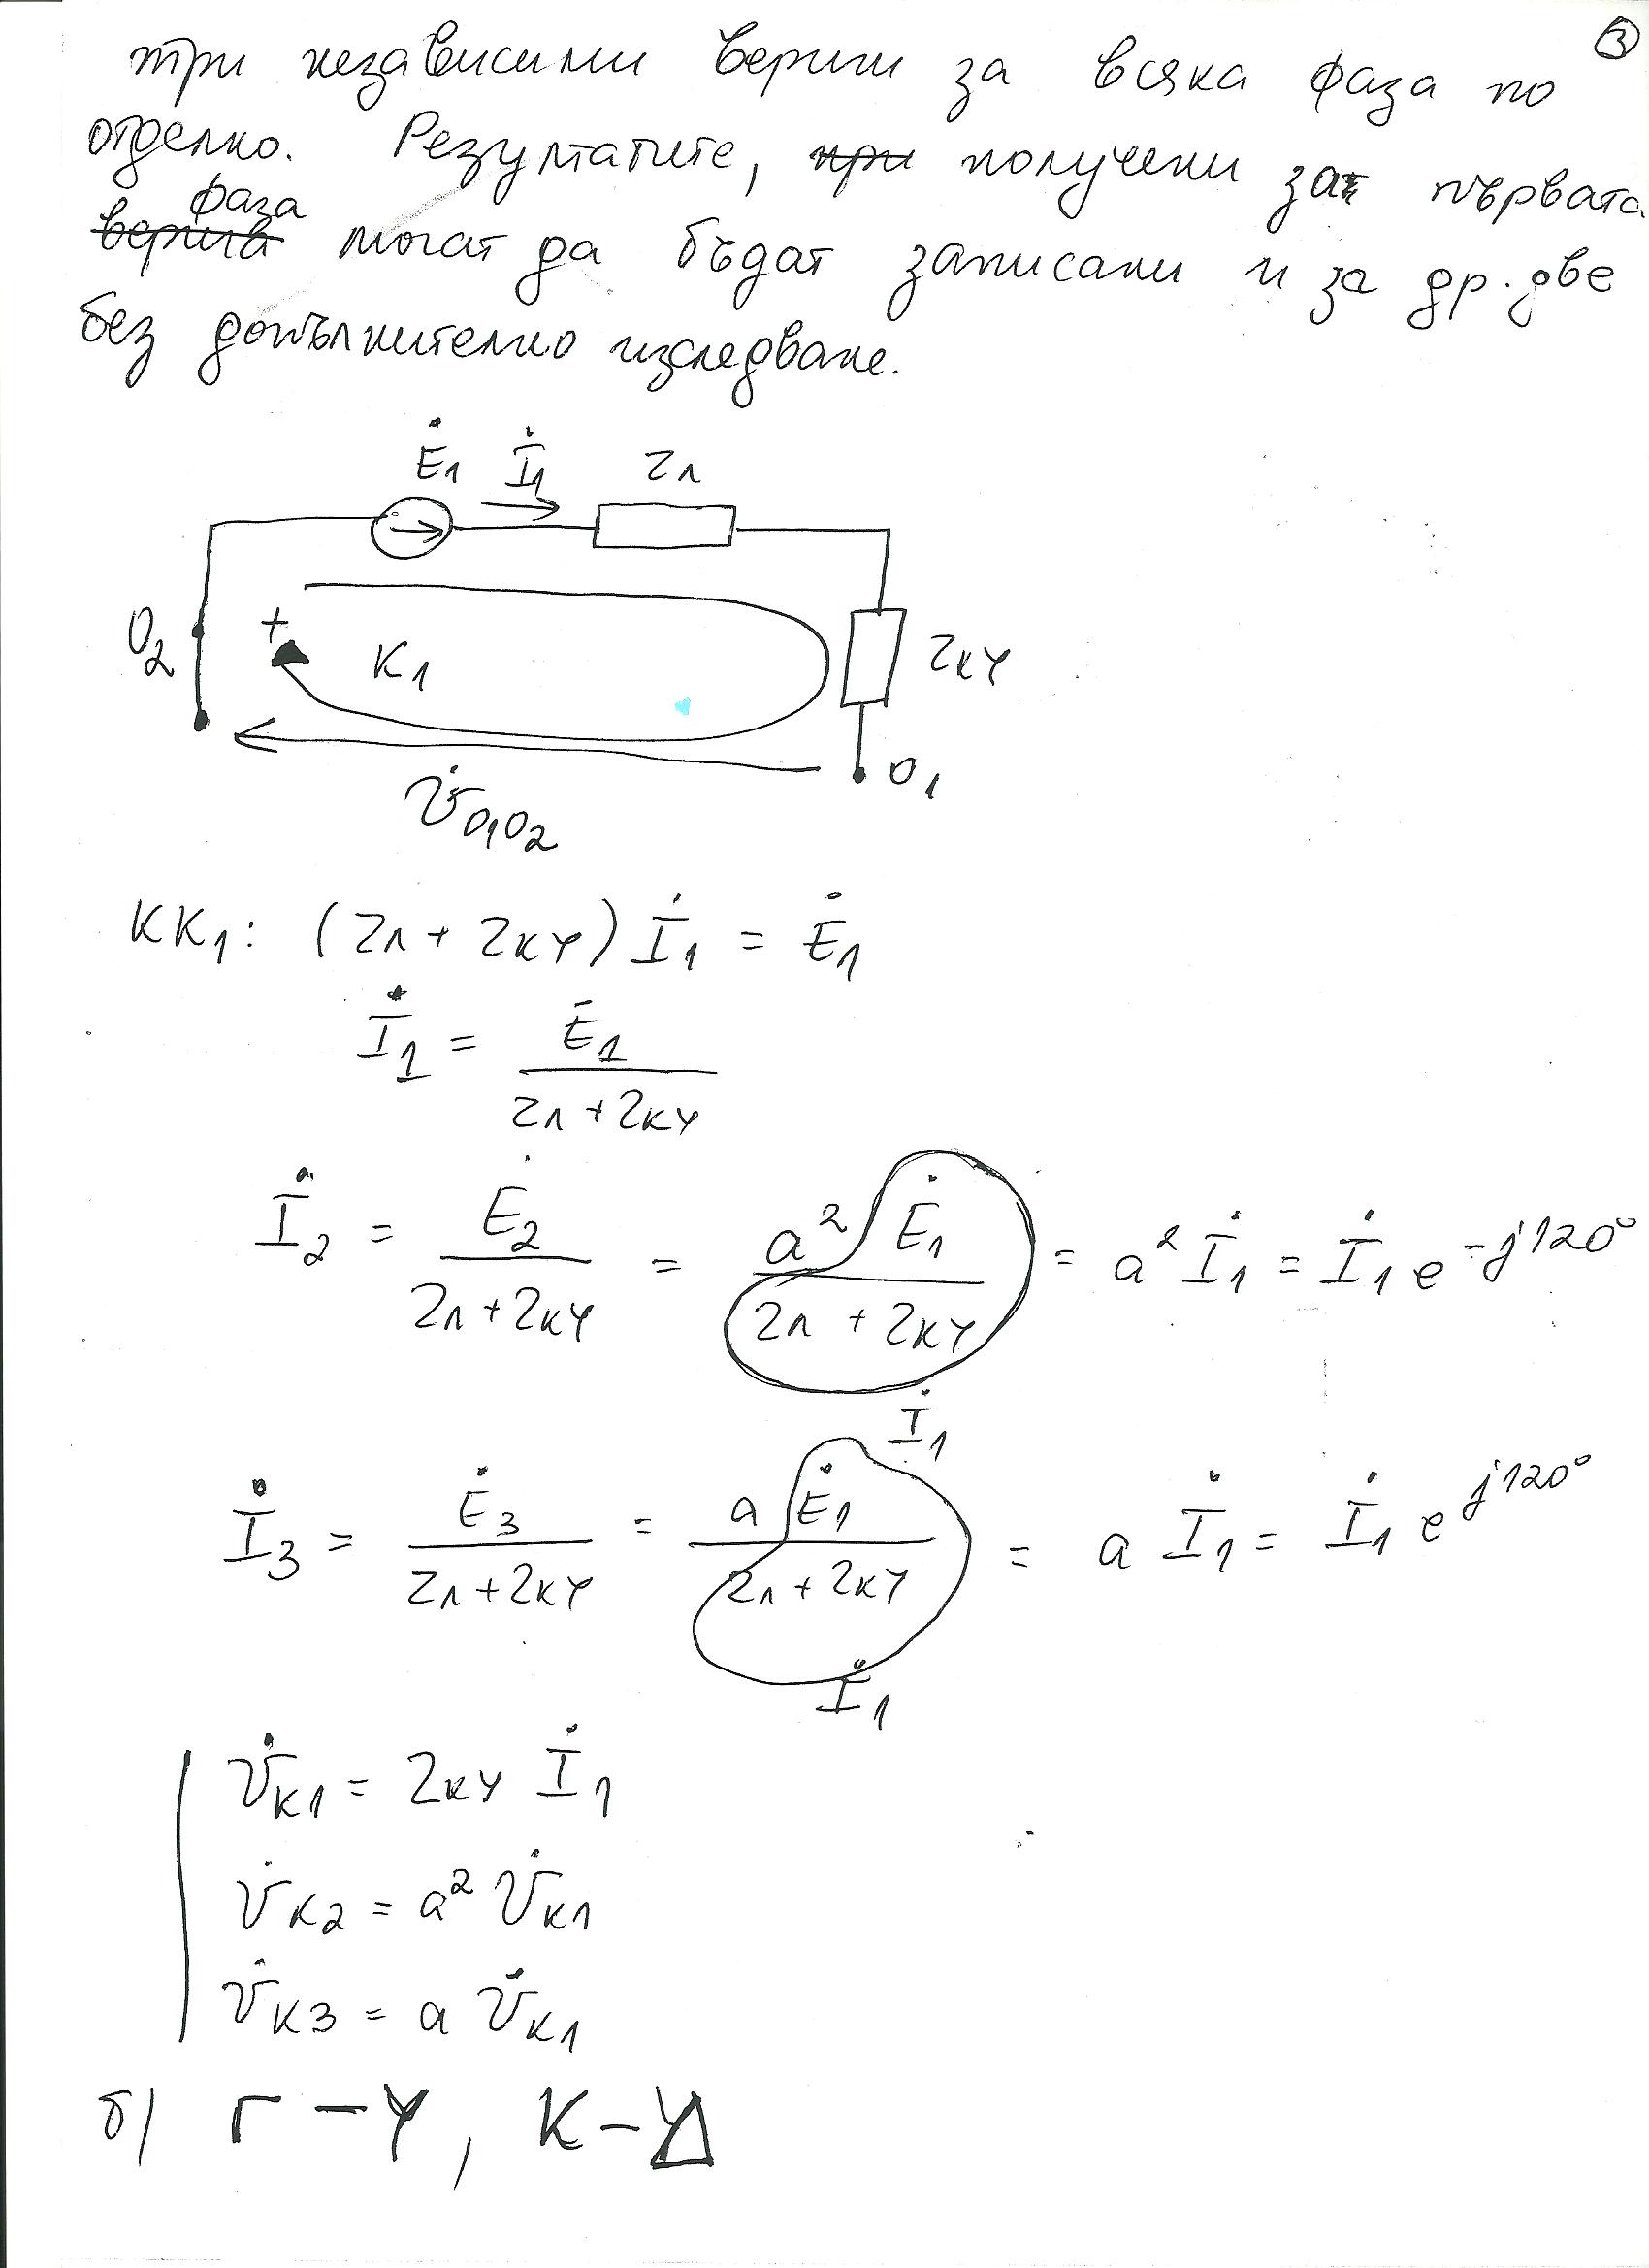 3
три независими вериги за всяка фаза по
отделно. Резултатите, при получени за първата
фаза
верига могат да бъдат записани и за др. две
без допълнително изследване.
Ė1 İ1 Zл
O2 + K1 ZкY
U̇O1O2 O1
KK1: (Zл + ZкY) İ1 = Ė1
İ1 = Ė1 / (Zл + ZкY)
İ2 = Ė2 / (Zл + ZкY) = a² Ė1 / (Zл + ZкY) = a² İ1 = İ1 e^-j120°
İ1
İ3 = Ė3 / (Zл + ZкY) = a Ė1 / (Zл + ZкY) = a İ1 = İ1 e^j120°
İ1
U̇к1 = ZкY İ1
U̇к2 = a² U̇к1
U̇к3 = a U̇к1
б) Г – Y, К – Δ